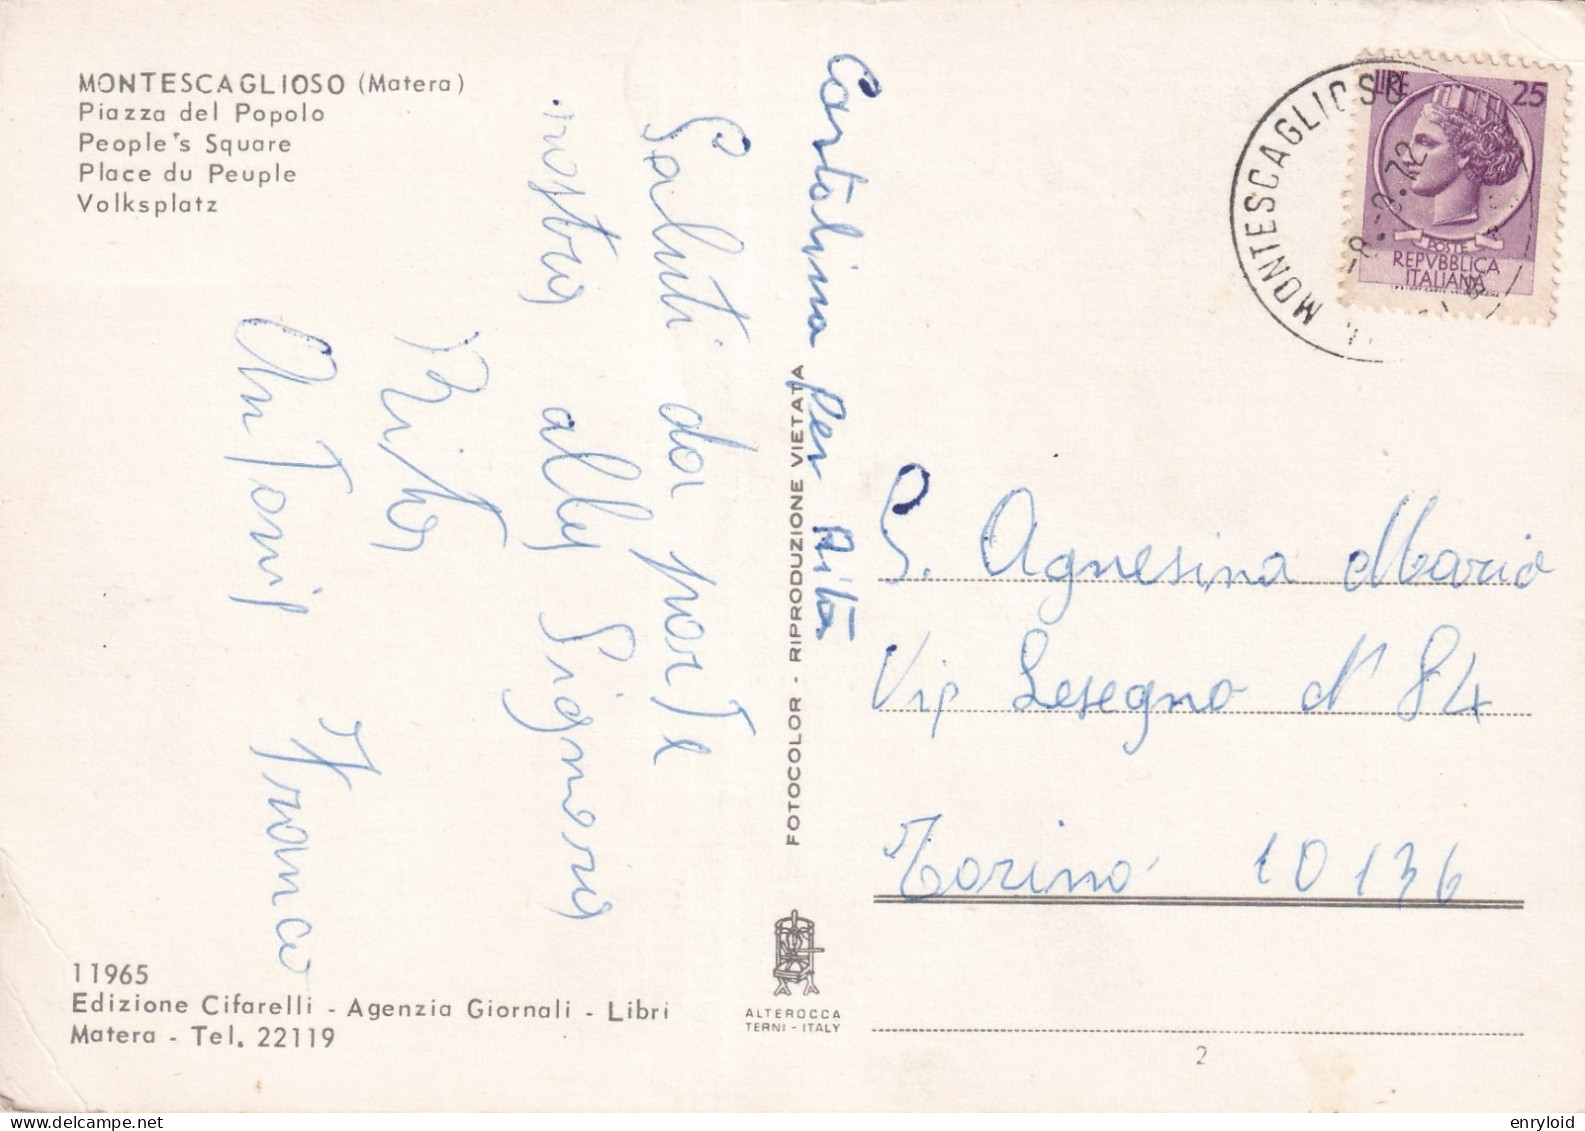 MONTESCAGLIOSO (Matera)
Piazza del Popolo
People's Square
Place du Peuple
Volksplatz
Saluti da parte
nostra alla Signora
Rita
Antonio Franco
11965
Edizione Cifarelli - Agenzia Giornali - Libri
Matera - Tel. 22119
Cartolina per Rita
FOTOCOLOR - RIPRODUZIONE VIETATA
ALTEROCCA
TERNI - ITALY
MONTESCAGLIOSO
-8.-2.72
LIRE 25
POSTE
REPVBBLICA
ITALIANA
S. Agnesina Maria
Via Lesegno N 84
Torino 10136
2
www.delcampe.net
enryloid